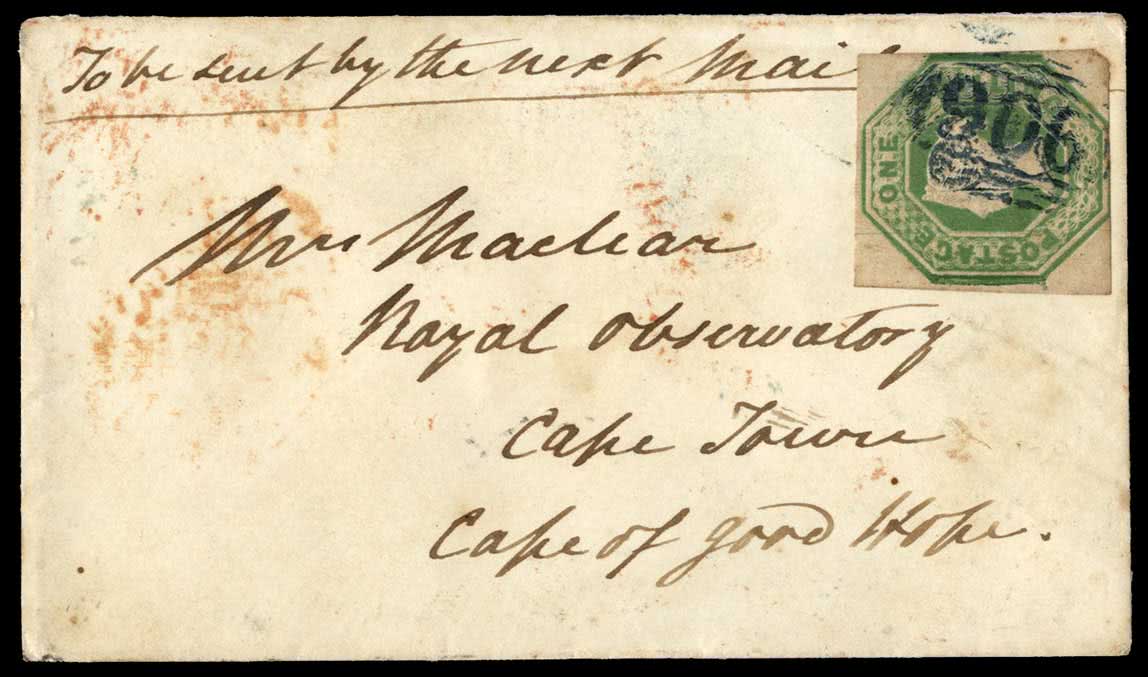 To be sent by the next Mail
Mrs Maclear
Royal Observatory
Cape Town
Cape of good Hope.
POSTAGE ONE
906